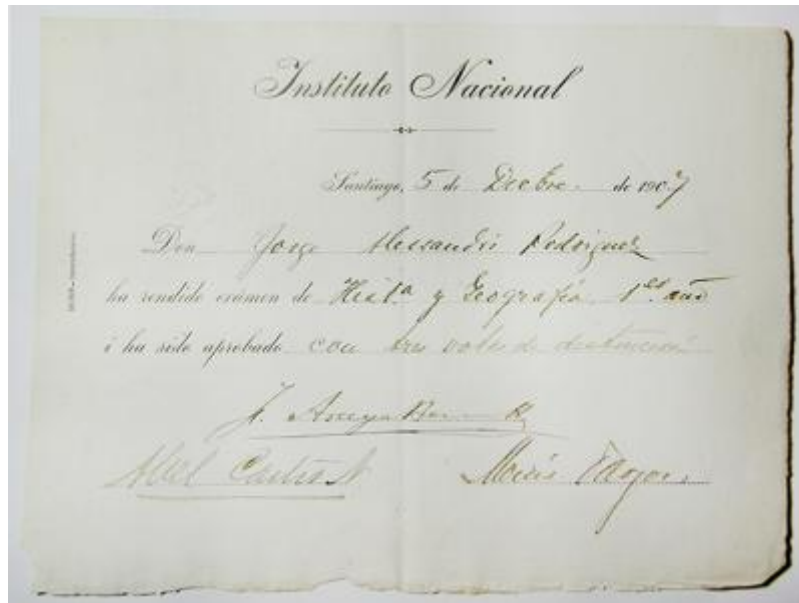 Instituto Nacional
Santiago, 5 de Dicbre. de 1907
Don Jorge Alessandri Rodriguez
ha rendido exámen de Hist.ª y Geografía 1er. año
i ha sido aprobado con tres votos de distincion
Abel Castro
Moisés Vargas